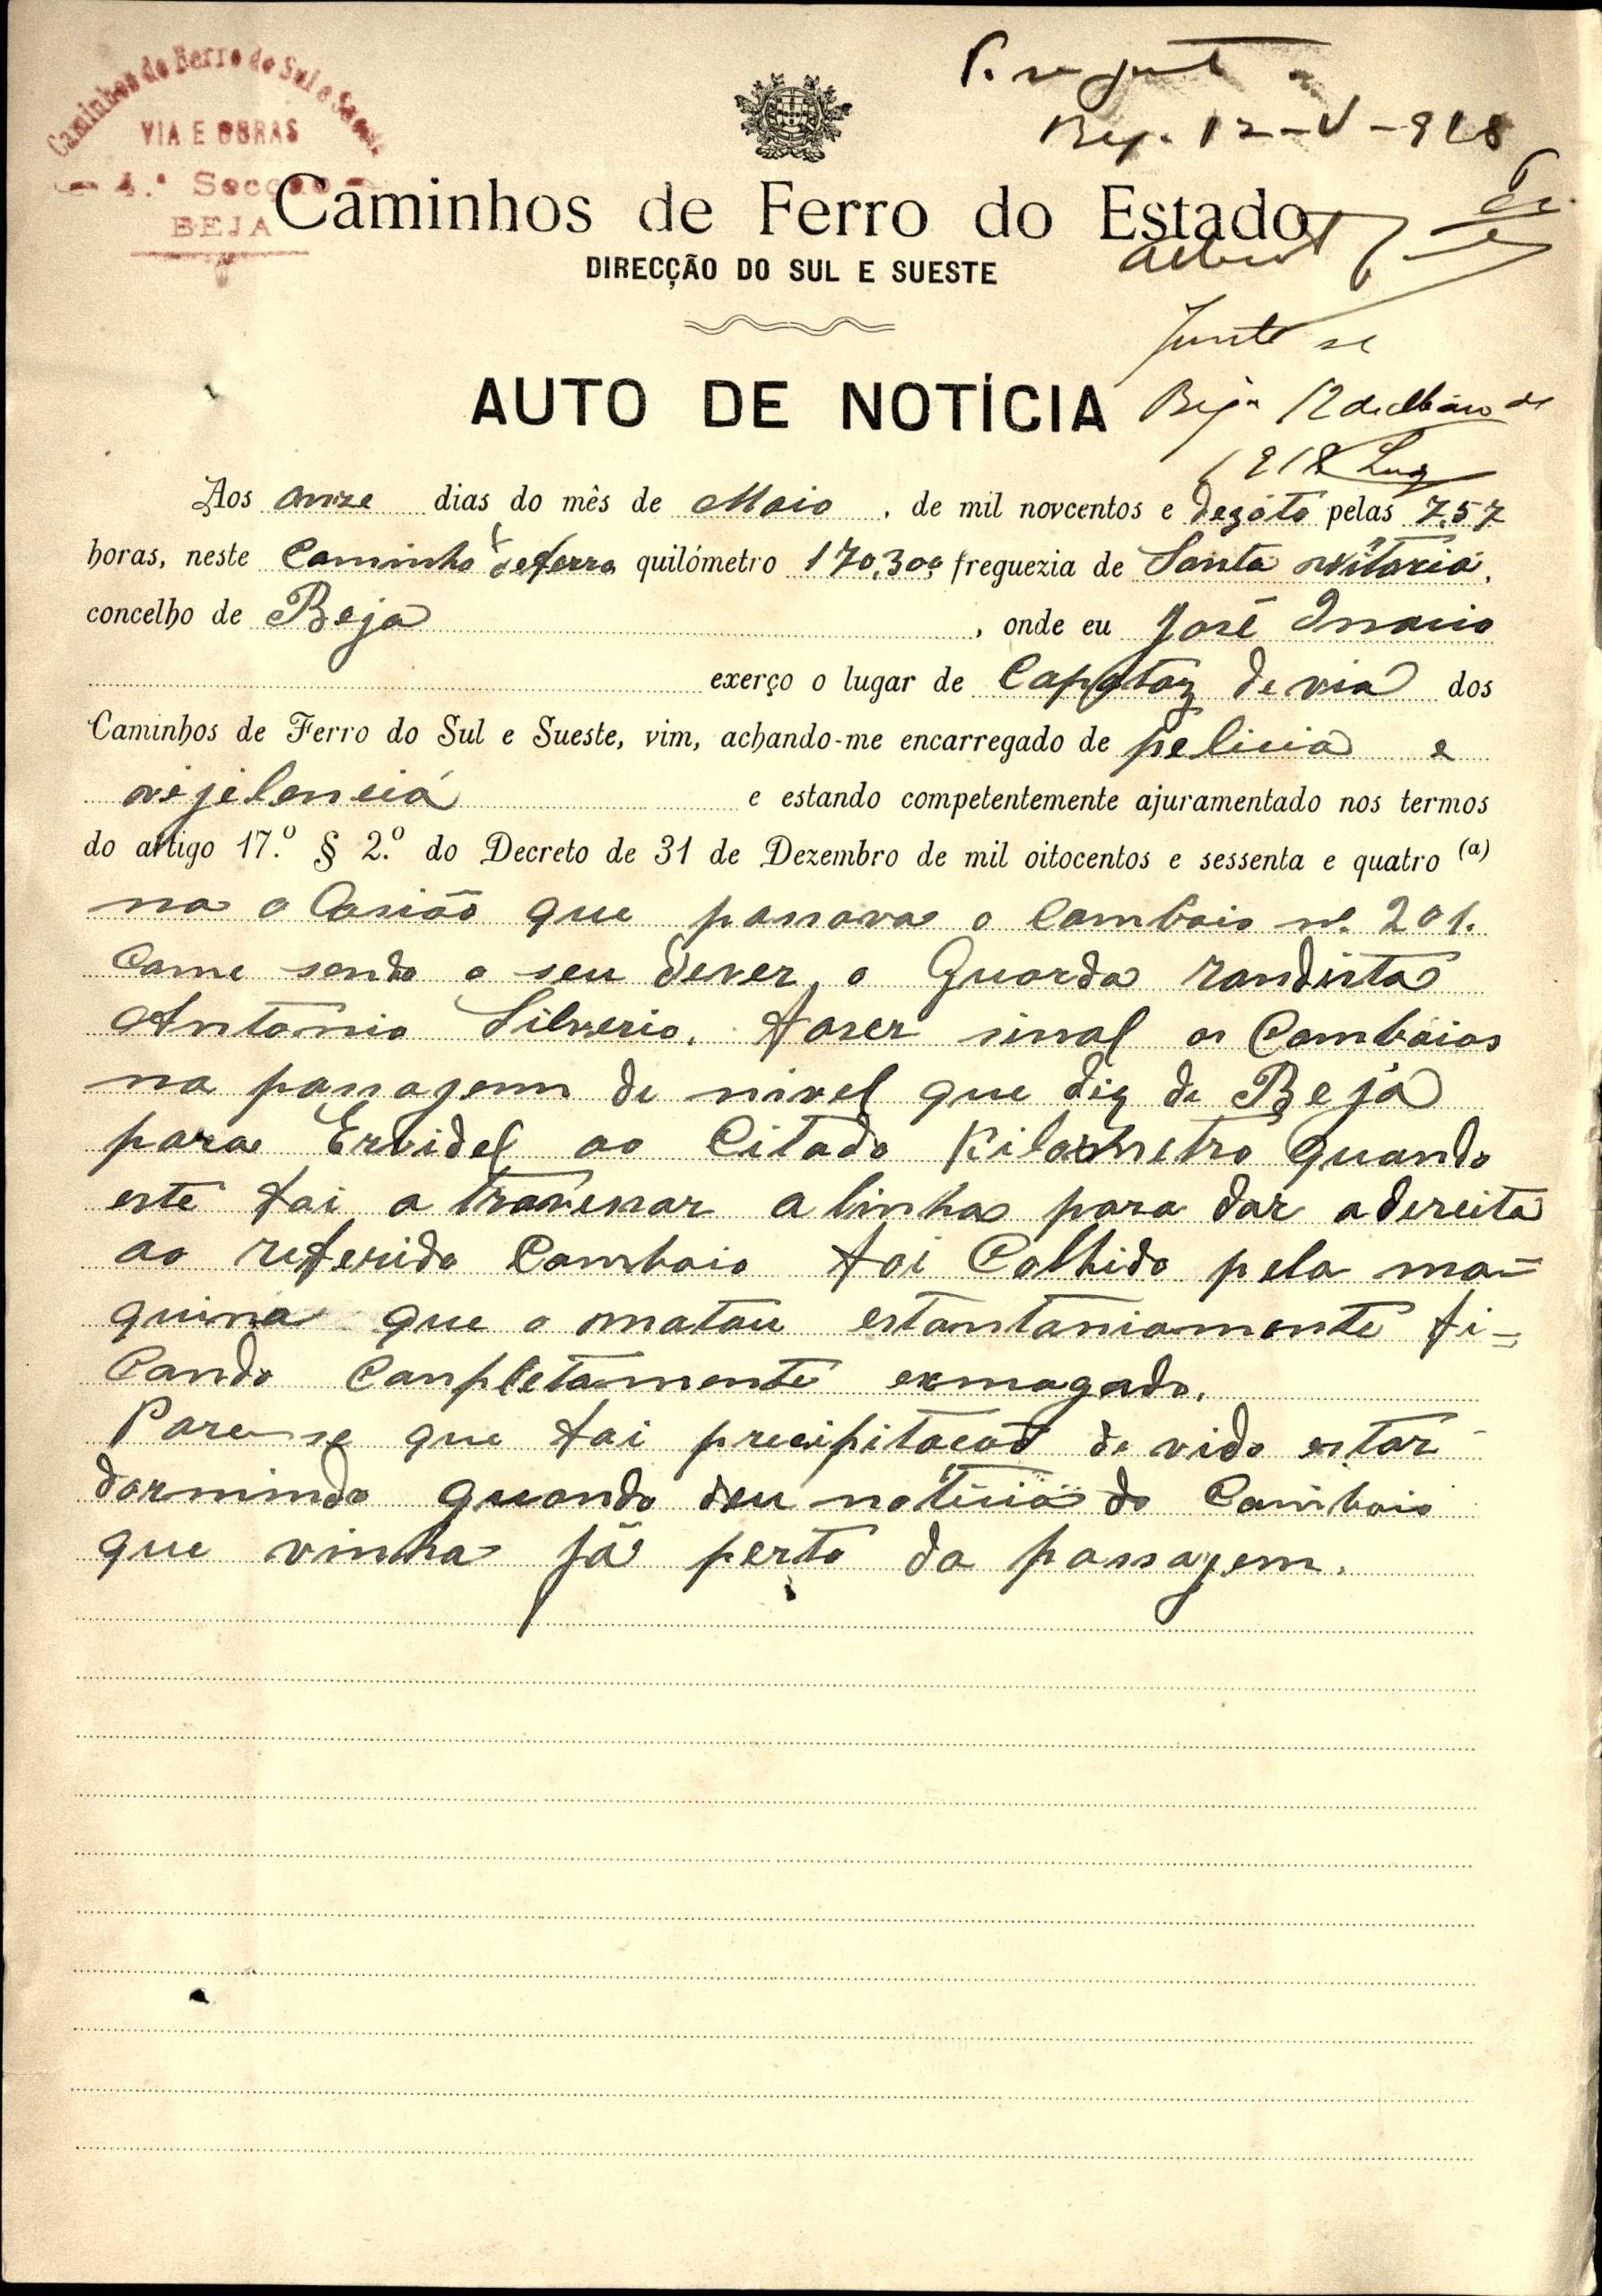 Caminhos de Ferro do Sul e Sueste
VIA E OBRAS
4.ª Secção
BEJA
Beja 12-V-918
Caminhos de Ferro do Estado
DIRECÇÃO DO SUL E SUESTE
Junte se
AUTO DE NOTÍCIA
Beja 12 de Maio de
1918 Luz
Aos onze dias do mês de Maio, de mil novcentos e dezóto pelas 7,57
horas, neste Caminho de ferro quilómetro 170,300 freguezia de Santa vitaria,
concelho de Beja, onde eu José Inacio
exerço o lugar de Capataz de via dos
Caminhos de Ferro do Sul e Sueste, vim, achando-me encarregado de pelicia e
vijelencia e estando competentemente ajuramentado nos termos
do artigo 17.º § 2.º do Decreto de 31 de Dezembro de mil oitocentos e sessenta e quatro (a)
na o Casião que passava o Comboio nº 201.
Come sendo o seu dever, o Guarda rondista
Antonio Silverio. faser sinal os Comboios
na passagem de nivel que diz de Beja
para Ervidel ao Citado Kilometro quando
este foi a travessar a linha para dar a dereita
ao referido Comboio foi Colhido pela ma=
quina que o matou estantaniamente fi=
Cando Conpletamente esmagado.
Parese que foi precipitacao de vido estar
dormindo quando deu noticia do Comboio
que vinha já perto da passagem.